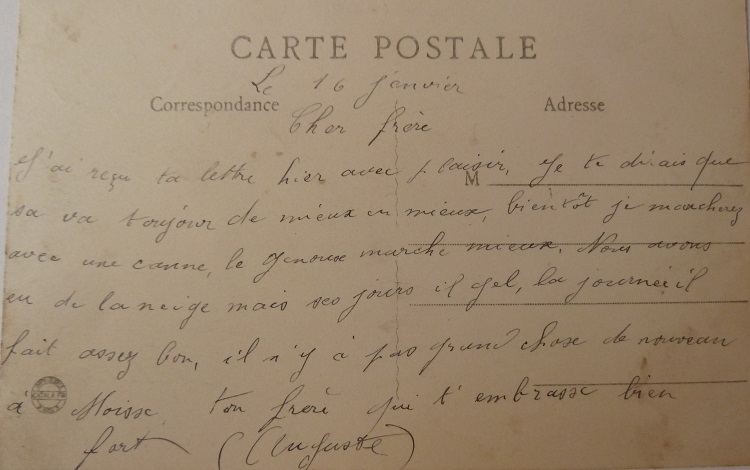 CARTE POSTALE
Le 16 janvier
Correspondance
Adresse
Cher frère
J'ai reçu ta lettre hier avec plaisir, Je te dirais que
M
sa va toujour de mieux en mieux, bientôt je marcherez
avec une canne, le genoux marche mieux. Nous avons
eu de la neige mais ses jours il gel, la journée il
fait assez bon, il n'y à pas grand chose de nouveau
à Moisse ton frère qui t'embrasse bien
fort (Auguste)